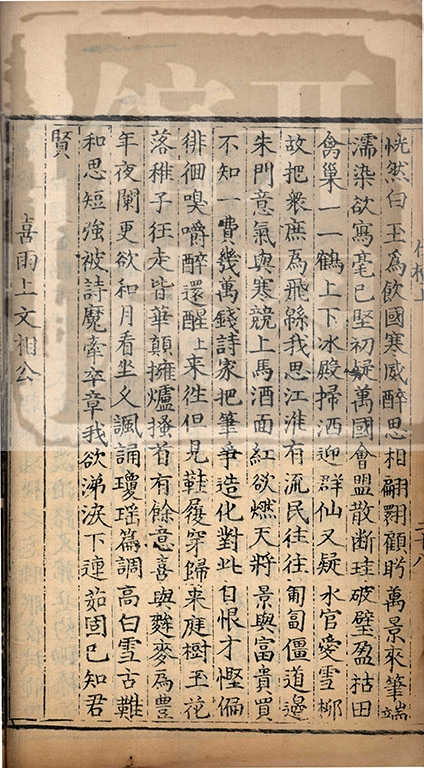 恍然白玉為飲國寒威醉思相翩翾顧眄萬景來筆端
濡染欲寫毫已堅初疑萬國會盟散断珪破璧盈祜田
禽巢一一鶴上下冰殿掃洒迎群仙又疑水官愛雪柳
故把衆庶為飛緜我思江淮有流民往往匍匐僵道邊
朱門意氣與寒競上馬酒面紅欲燃天將景與富貴買
不知一費幾萬錢詩家把筆爭造化對此自恨才慳偏
徘徊嗅嚼醉還醒上来徃但見鞋履穿歸来庭樹玉花
落稚子狂走皆華顛擁爐搔首有餘意喜與麰麥為豊
年夜闌更欲和月看坐久諷誦瓊瑶篇調高白雪古難
和思短強被詩魔牽卒章我欲涕淚下連茹固已知君
賢
喜雨上文相公
二十八